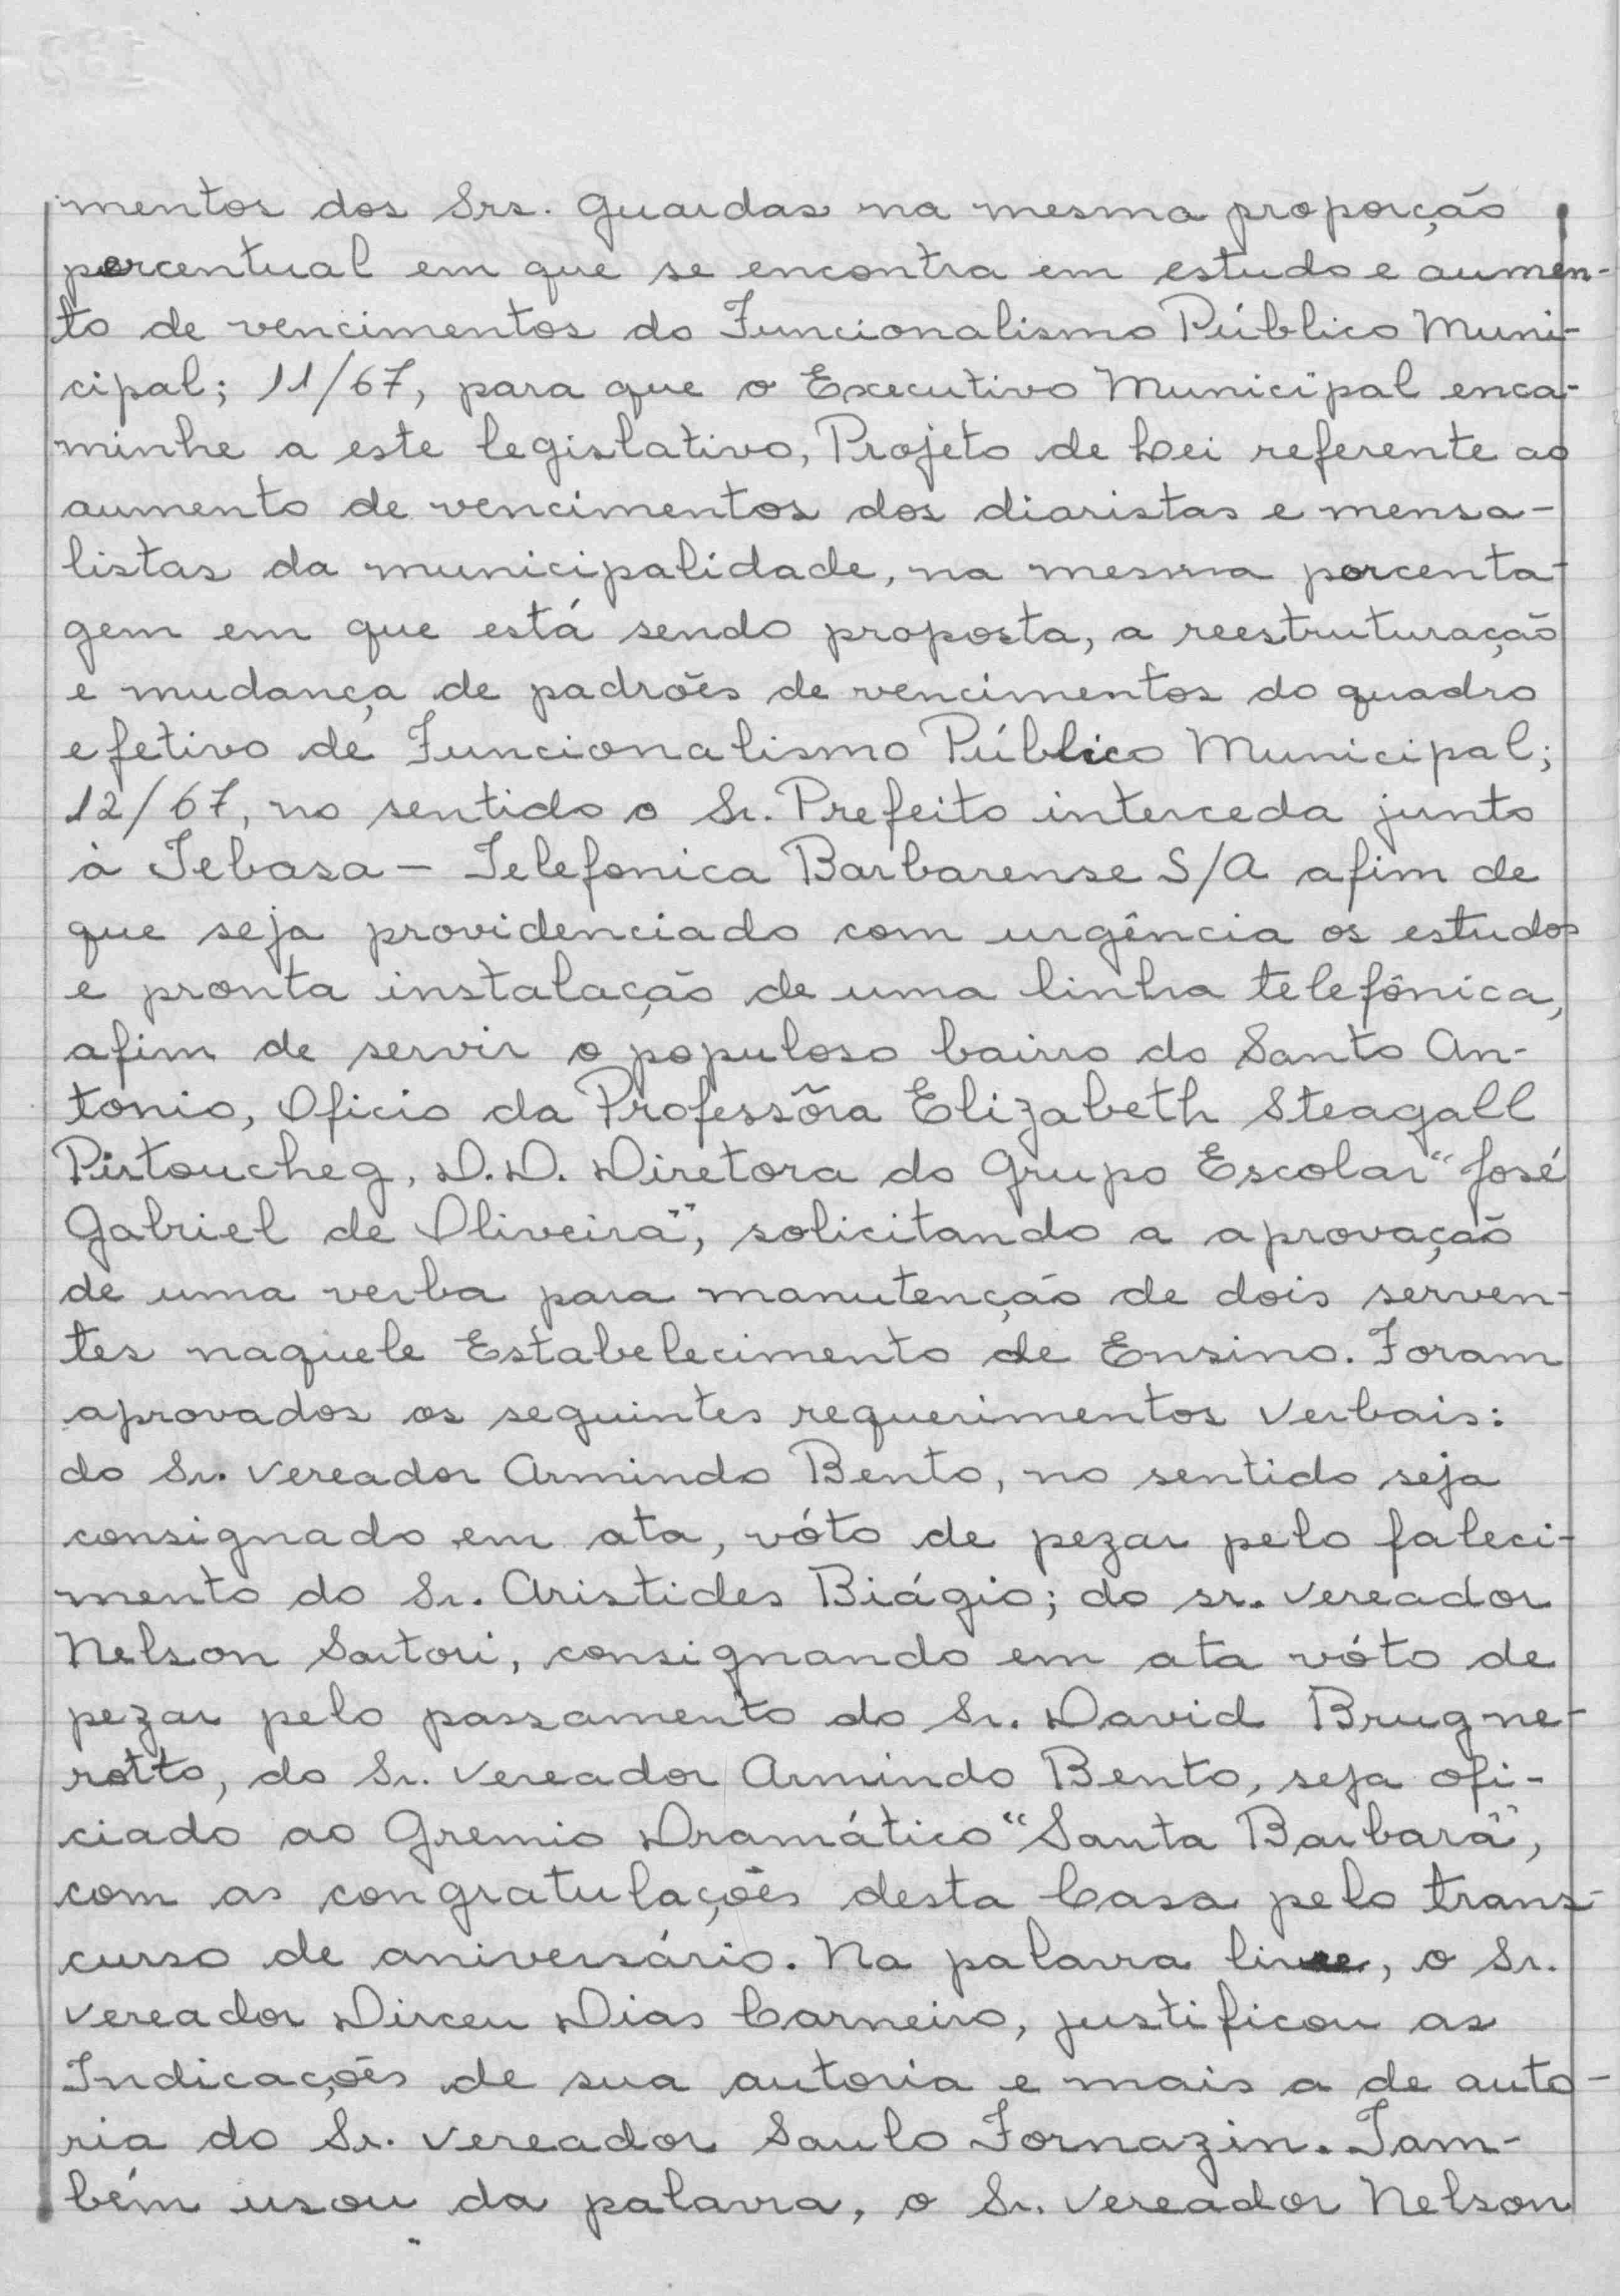 mentos dos Srs. Guardas na mesma proporção
percentual em que se encontra em estudo e aumen-
to de vencimentos do Funcionalismo Público Muni-
cipal; 11/67, para que o Executivo Municipal enca-
minhe a este legislativo, Projeto de Lei referente ao
aumento de vencimentos dos diaristas e mensa-
listas da municipalidade, na mesma porcenta-
gem em que está sendo proposta, a reestruturação
e mudança de padrões de vencimentos do quadro
efetivo de Funcionalismo Público Municipal;
12/67, no sentido o Sr. Prefeito interceda junto
à Tebasa - Telefonica Barbarense S/A afim de
que seja providenciado com urgência os estudos
e pronta instalação de uma linha telefônica,
afim de servir o populoso bairro do Santo An-
tonio, Oficio da Professôra Elizabeth Steagall
Pistoucheg, D.D. Diretora do Grupo Escolar "José
Gabriel de Oliveira", solicitando a aprovação
de uma verba para manutenção de dois serven-
tes naquele Estabelecimento de Ensino. Foram
aprovados os seguintes requerimentos verbais:
do Sr. Vereador Armindo Bento, no sentido seja
consignado em ata, vóto de pezar pelo faleci-
mento do Sr. Aristides Biágio; do sr. Vereador
Nelson Sartori, consignando em ata vóto de
pezar pelo passamento do Sr. David Brugne-
rotto, do Sr. Vereador Armindo Bento, seja ofi-
ciado ao Gremio Dramático "Santa Barbara",
com as congratulações desta Casa pelo trans-
curso de aniversário. Na palavra livre, o Sr.
Vereador Dirceu Dias Carneiro, justificou as
Indicações de sua autoria e mais a de auto-
ria do Sr. Vereador Saulo Fornazin. Tam-
bém usou da palavra, o Sr. Vereador Nelson